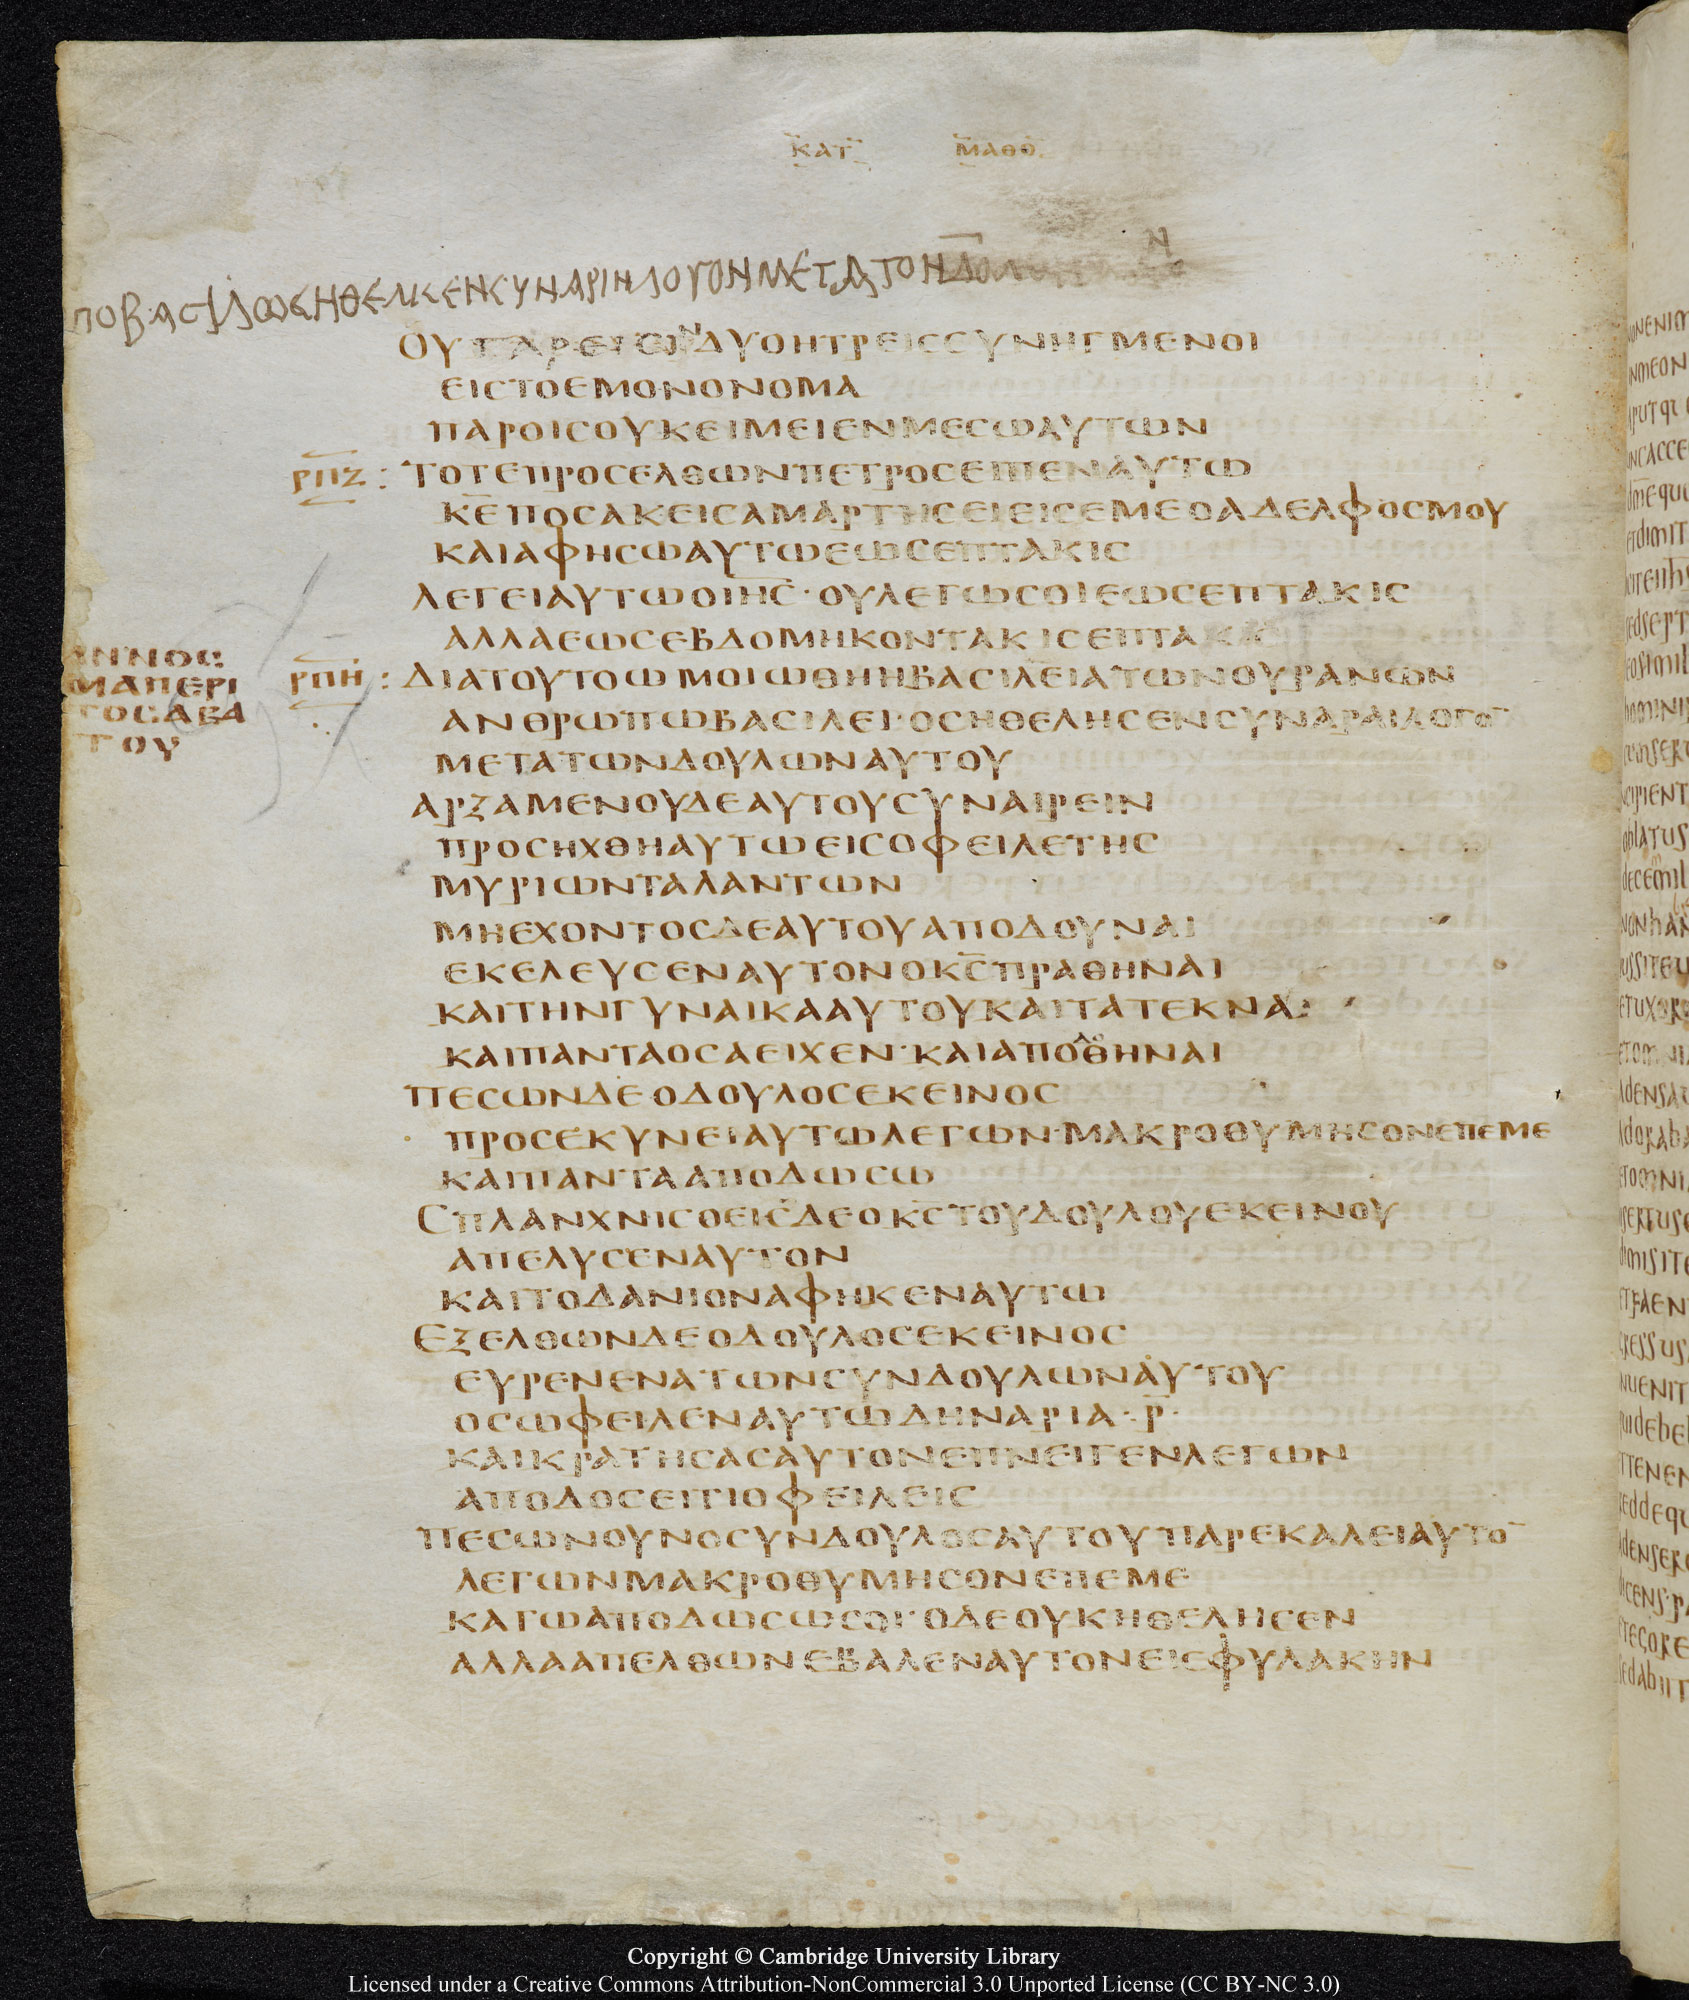 ΚΑΤ ΜΑΘΘ
ΟΥ ΓΑΡΕΙΣΙΝΔΥΟΗΤΡΕΙϹϹΥΝΗΓΜΕΝΟΙ
ΕΙϹΤΟΕΜΟΝΟΝΟΜΑ
ΠΑΡΟΙϹΟΥΚΕΙΜΕΙΕΝΜΕϹΩΑΥΤΩΝ
ΡΠΖ : ΤΟΤΕΠΡΟϹΕΛΘΩΝΠΕΤΡΟϹΕΙΠΕΝΑΥΤΩ
Κ̅Ε̅ΠΟϹΑΚΕΙϹΑΜΑΡΤΗϹΕΙΕΙϹΕΜΕΟΑΔΕΛΦΟϹΜΟΥ
ΚΑΙΑΦΗϹΩΑΥΤΩΕΩϹΕΠΤΑΚΙϹ
ΛΕΓΕΙΑΥΤΩΟΙ̅Η̅Ϲ̅·ΟΥΛΕΓΩϹΟΙΕΩϹΕΠΤΑΚΙϹ
ΑΛΛΑΕΩϹΕΒΔΟΜΗΚΟΝΤΑΚΙϹΕΠΤΑΚΙϹ
ΡΠΗ : ΔΙΑΤΟΥΤΟΩΜΟΙΩΘΗΗΒΑϹΙΛΕΙΑΤΩΝΟΥΡΑΝΩΝ
ΑΝΘΡΩΠΩΒΑϹΙΛΕΙ·ΟϹΗΘΕΛΗϹΕΝϹΥΝΑΡΑΙΛΟΓΟ̅
ΜΕΤΑΤΩΝΔΟΥΛΩΝΑΥΤΟΥ
ΑΡΞΑΜΕΝΟΥΔΕΑΥΤΟΥϹΥΝΑΙΡΕΙΝ
ΠΡΟϹΗΧΘΗΑΥΤΩΕΙϹΟΦΕΙΛΕΤΗϹ
ΜΥΡΙΩΝΤΑΛΑΝΤΩΝ
ΜΗΕΧΟΝΤΟϹΔΕΑΥΤΟΥΑΠΟΔΟΥΝΑΙ
ΕΚΕΛΕΥϹΕΝΑΥΤΟΝΟΚ̅Ϲ̅ΠΡΑΘΗΝΑΙ
ΚΑΙΤΗΝΓΥΝΑΙΚΑΑΥΤΟΥΚΑΙΤΑΤΕΚΝΑ
ΚΑΙΠΑΝΤΑΟϹΑΕΙΧΕΝ·ΚΑΙΑΠΟΔΟΘΗΝΑΙ
ΠΕϹΩΝΔΕΟΔΟΥΛΟϹΕΚΕΙΝΟϹ
ΠΡΟϹΕΚΥΝΕΙΑΥΤΩΛΕΓΩΝ·ΜΑΚΡΟΘΥΜΗϹΟΝΕΠΕΜΕ
ΚΑΙΠΑΝΤΑΑΠΟΔΩϹΩ
ϹΠΛΑΝΧΝΙϹΘΕΙϹΔΕΟΚ̅Ϲ̅ΤΟΥΔΟΥΛΟΥΕΚΕΙΝΟΥ
ΑΠΕΛΥϹΕΝΑΥΤΟΝ
ΚΑΙΤΟΔΑΝΙΟΝΑΦΗΚΕΝΑΥΤΩ
ΕΞΕΛΘΩΝΔΕΟΔΟΥΛΟϹΕΚΕΙΝΟϹ
ΕΥΡΕΝΕΝΑΤΩΝϹΥΝΔΟΥΛΩΝΑΥΤΟΥ
ΟϹΩΦΕΙΛΕΝΑΥΤΩΔΗΝΑΡΙΑ·Ρ̅·
ΚΑΙΚΡΑΤΗϹΑϹΑΥΤΟΝΕΠΝΕΙΓΕΝΛΕΓΩΝ
ΑΠΟΔΟϹΕΙΤΙΟΦΕΙΛΕΙϹ
ΠΕϹΩΝΟΥΝΟϹΥΝΔΟΥΛΟϹΑΥΤΟΥΠΑΡΕΚΑΛΕΙΑΥΤΟ̅
ΛΕΓΩΝΜΑΚΡΟΘΥΜΗϹΟΝΕΠΕΜΕ
ΚΑΓΩΑΠΟΔΩϹΩϹΟΙ·ΟΔΕΟΥΚΗΘΕΛΗϹΕΝ
ΑΛΛΑΑΠΕΛΘΩΝΕΒΑΛΕΝΑΥΤΟΝΕΙϹΦΥΛΑΚΗΝ
ΑΝΝΟϹ
ΜΑΠΕΡΙ
ΤΟϹΑΒΑ
ΤΟΥ
Copyright © Cambridge University Library
Licensed under a Creative Commons Attribution-NonCommercial 3.0 Unported License (CC BY-NC 3.0)